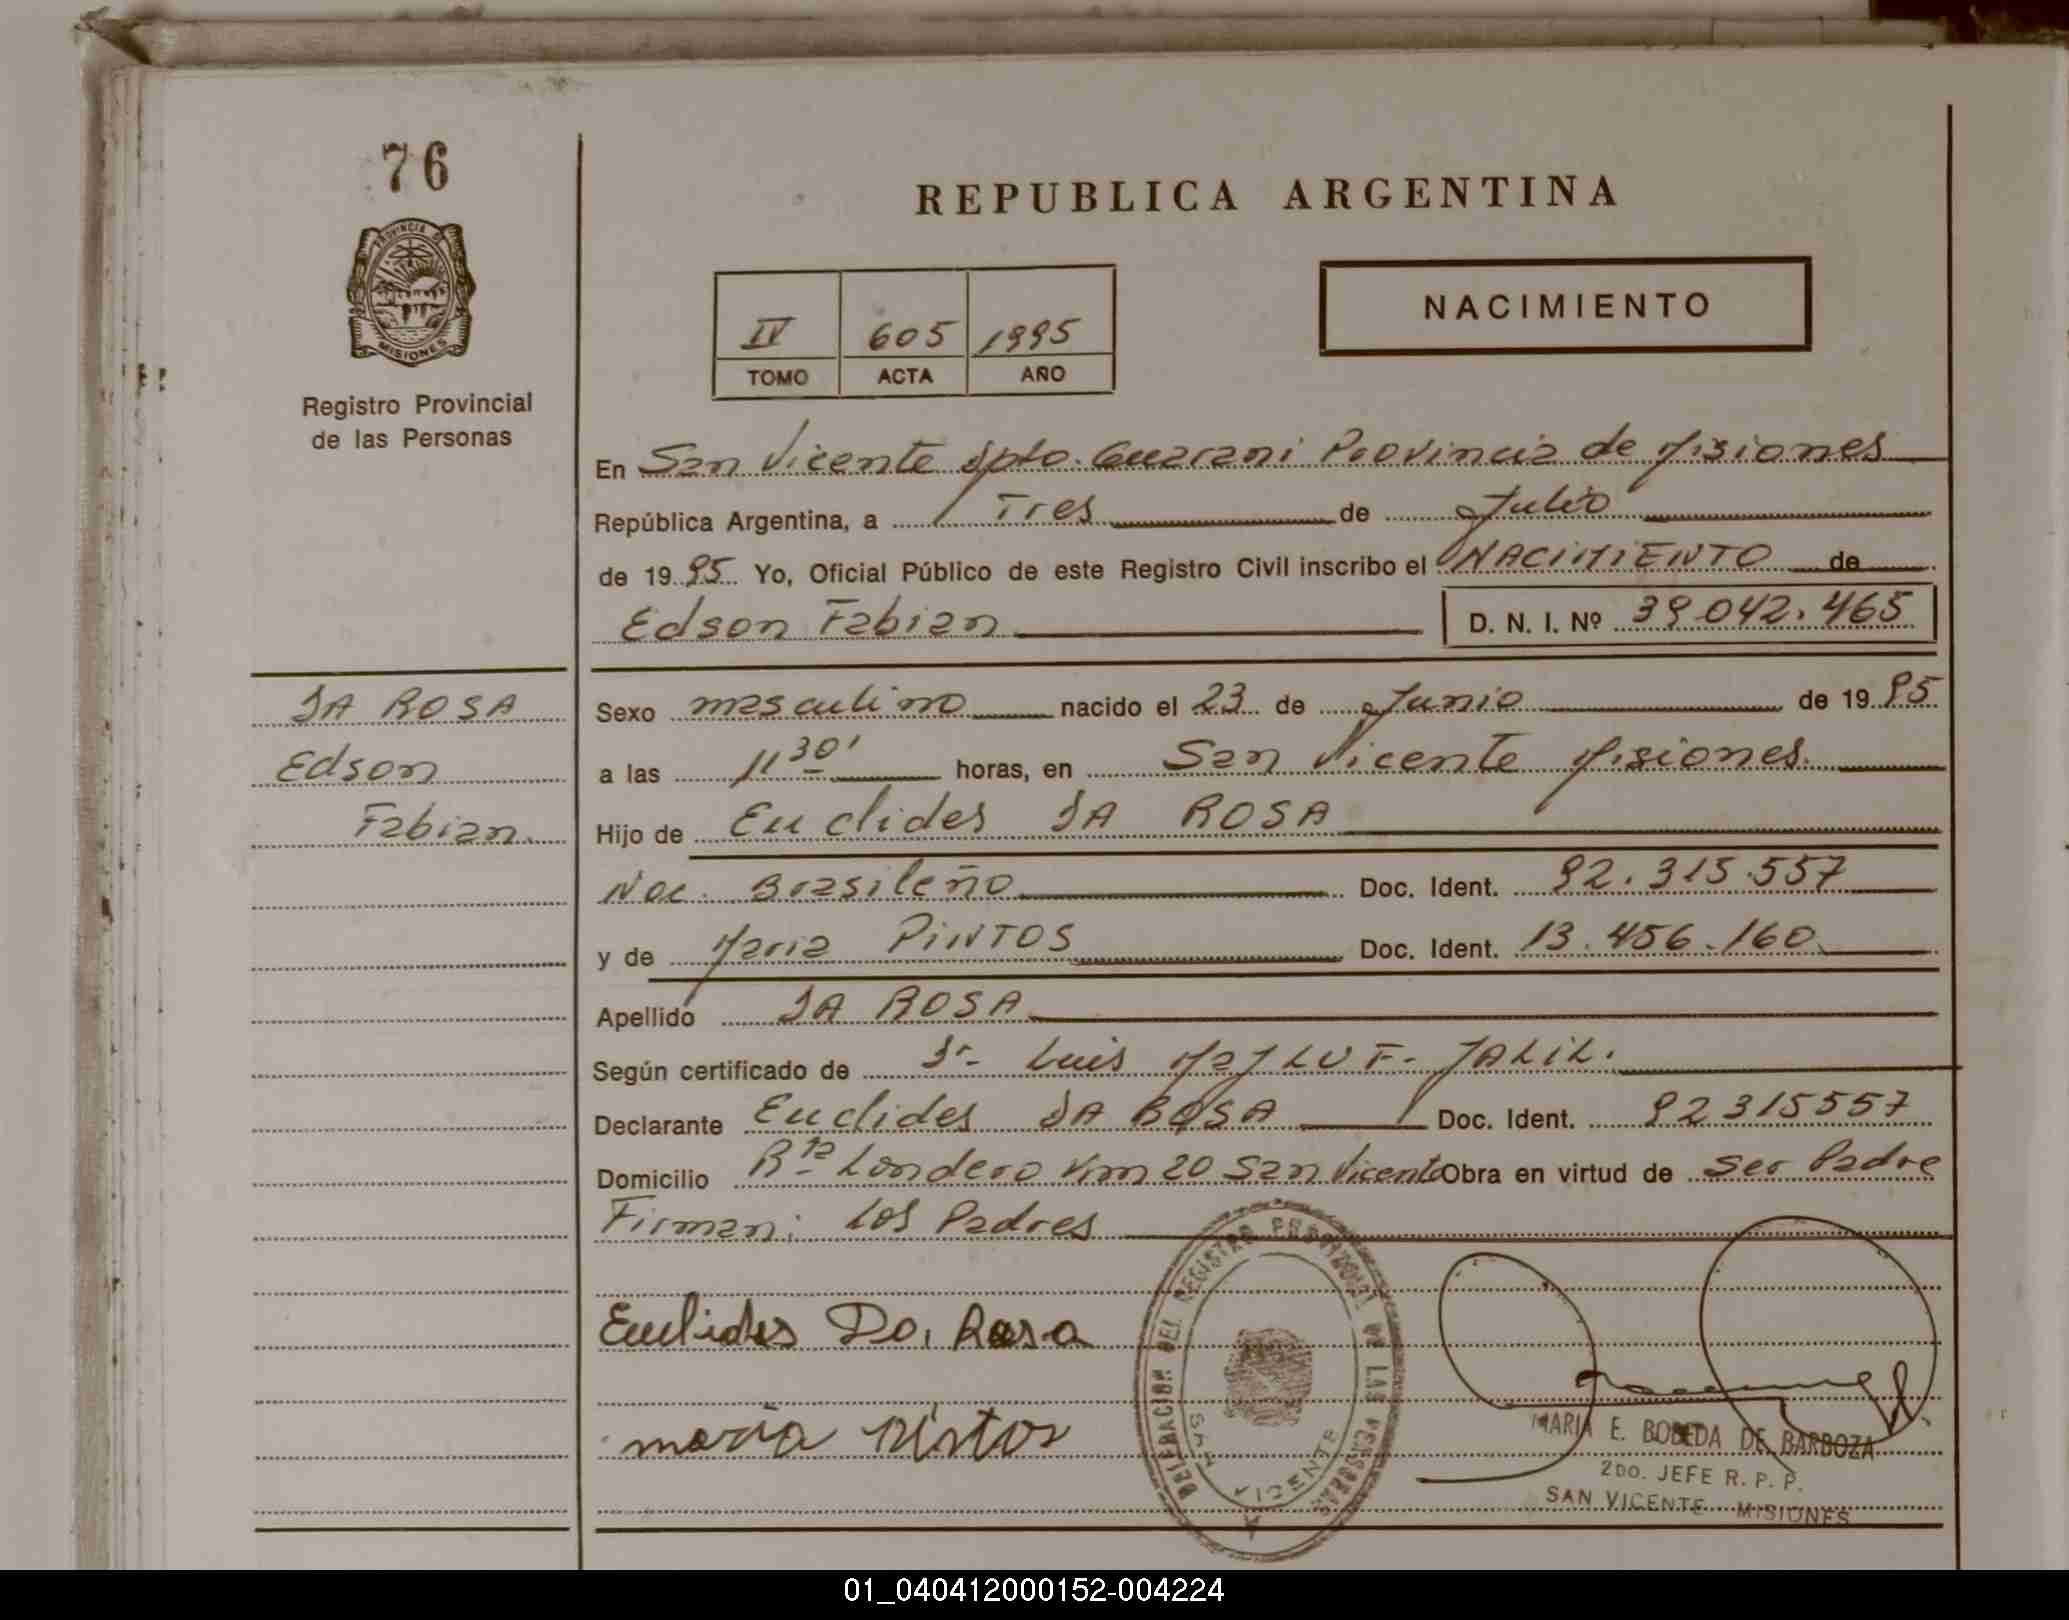 76
REPUBLICA ARGENTINA
PROVINCIA DE
MISIONES
Registro Provincial
de las Personas
IV 605 1995
TOMO ACTA AÑO
NACIMIENTO
En San Vicente Dpto. Guarani Provincia de Misiones
República Argentina, a Tres de Julio
de 1995 Yo, Oficial Público de este Registro Civil inscribo el NACIMIENTO de
Edson Fabian D. N. I. Nº 39.042.465
DA ROSA
Edson
Fabian.
Sexo masculino nacido el 23 de Junio de 1995
a las 11 30' horas, en San Vicente Misiones.
Hijo de Euclides DA ROSA
Nac. Brasileño Doc. Ident. 92.315.557
y de Maria PINTOS Doc. Ident. 13.456.160
Apellido DA ROSA
Según certificado de Dr. Luis JALIL.
Declarante Euclides DA ROSA Doc. Ident. 92315557
Domicilio Londero Km 20 San Vicente Obra en virtud de ser Padre
Firman: los Padres
Euclides Da Rosa
maria Pintos
DELEGACION DEL REGISTRO PROVINCIAL DE LAS PERSONAS
SAN VICENTE
MARIA E. BOBEDA DE BARBOZA
2DO. JEFE R. P. P.
SAN VICENTE MISIONES
01_040412000152-004224